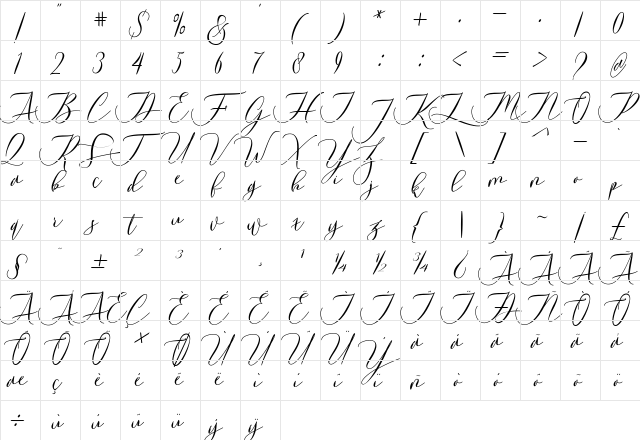 ! " # $ % & ' ( ) * + , - . / 0
1 2 3 4 5 6 7 8 9 : ; < = > ? @
A B C D E F G H I J K L M N O P
Q R S T U V W X Y Z [ \ ] ^ _ `
a b c d e f g h i j k l m n o p
q r s t u v w x y z { | } ~ ¡ £
§ ¨ ± ² ³ ´ ¸ ¹ ¼ ½ ¾ ¿ À Á Â Ã
Ä Å Æ Ç È É Ê Ë Ì Í Î Ï Ð Ñ Ò Ó
Ô Õ Ö × Ø Ù Ú Û Ü Ý à á â ã ä å
æ ç è é ê ë ì í î ï ñ ò ó ô õ ö
÷ ù ú û ü ý ÿ